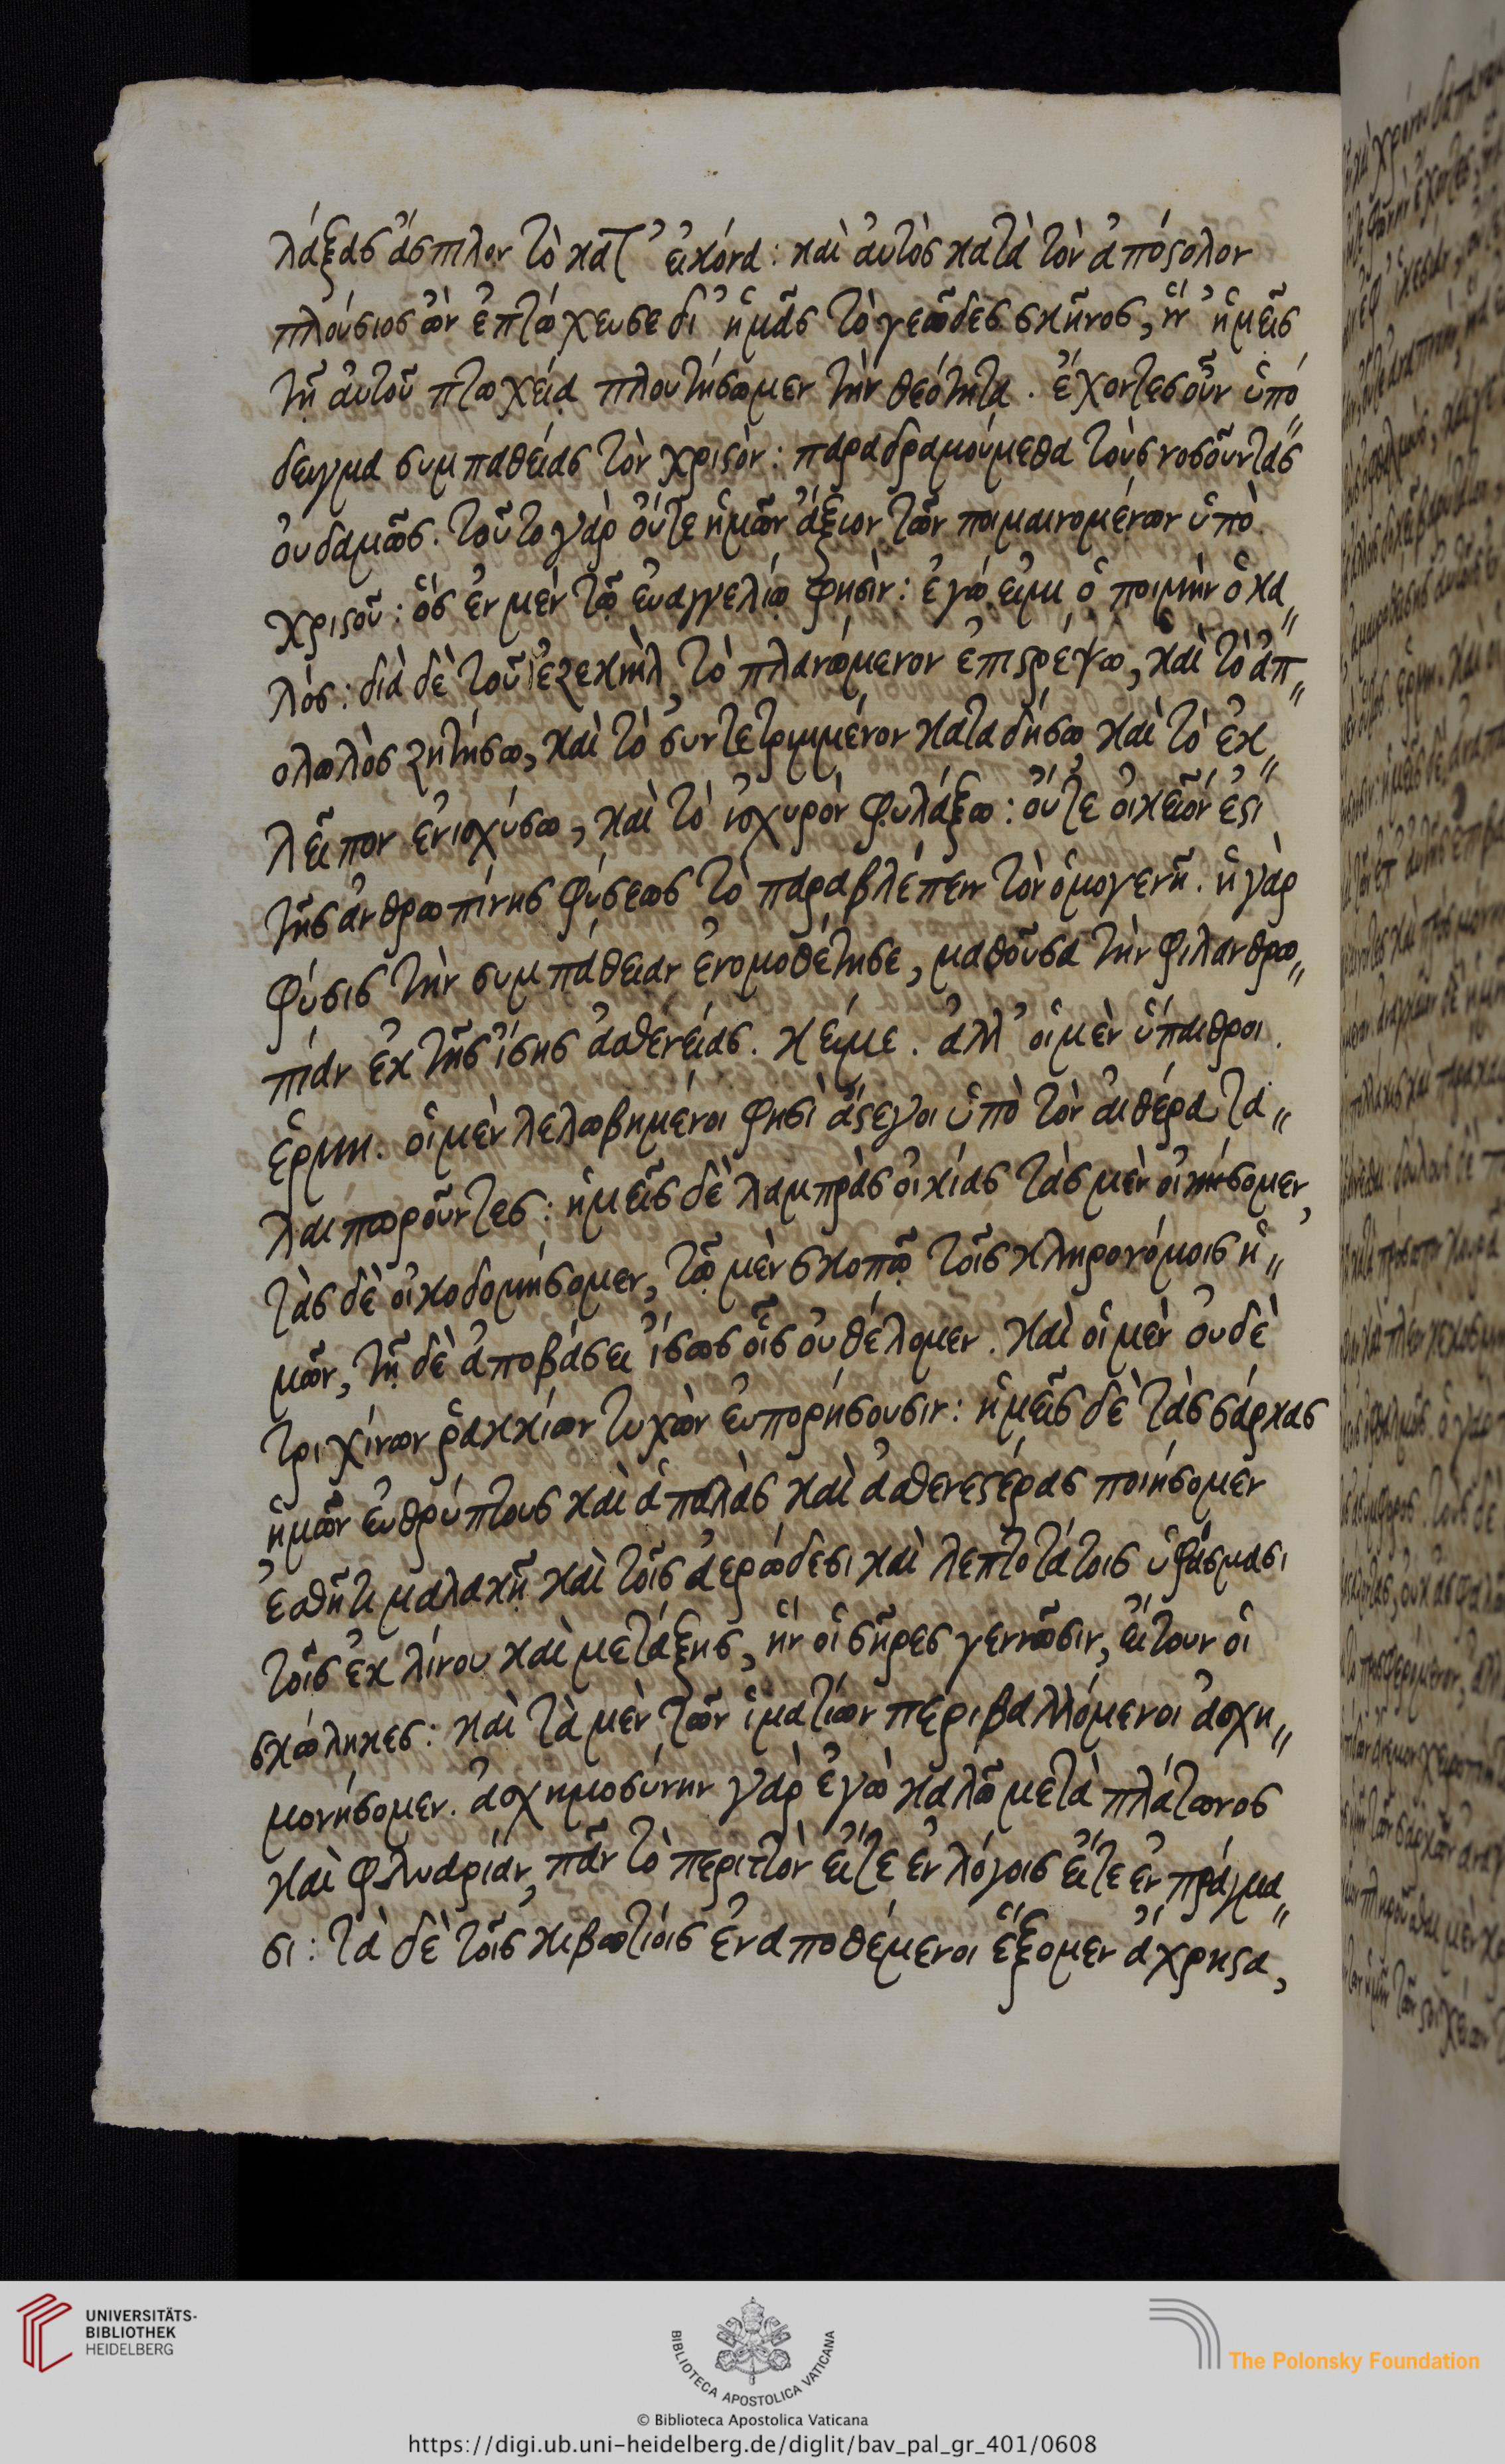 λάξας ἄσπιλον τὸ κατ᾽ εἰκόνα: καὶ αὐτὸς κατὰ τὸν ἀπόστολον
πλούσιος ὢν ἐπτώχευσε δι᾽ ἡμᾶς τὸ γεῶδες σκῆνος, ἵν᾽ ἡμεῖς
τῇ αὐτοῦ πτωχείᾳ πλουτήσωμεν τὴν θεότητα. ἔχοντες οὖν ὑπό„
δειγμα συμπαθείας τὸν χριστὸν: παραδραμούμεθα τοὺς νοσοῦντας
οὐδαμῶς. τοῦτο γὰρ οὔτε ἡμῶν ἄξιον τῶν ποιμαινομένων ὑπὸ
χριστοῦ: ὃς ἐν μὲν τῷ εὐαγγελίῳ φησίν: ἐγώ εἰμι ὁ ποιμὴν ὁ κα„
λός: διὰ δὲ τοῦ ἰεζεκιὴλ, τὸ πλανώμενον ἐπιστρέψω, καὶ τὸ ἀπ„
ολωλὸς ζητήσω, καὶ τὸ συντετριμμένον καταδήσω καὶ τὸ ἐκ„
λεῖπον ἐνισχύσω, καὶ τὸ ἰσχυρὸν φυλάξω: οὔτε οἰκεῖόν ἐστι
τῆς ἀνθρωπίνης φύσεως τὸ παραβλέπειν τὸν ὁμογενῆ. ἡ γὰρ
φύσις τὴν συμπάθειαν ἐνομοθέτησε, μαθοῦσα τὴν φιλανθρω„
πίαν ἐκ τῆς ἴσης ἀσθενείας. κείμε. ἀλλ᾽ οἱ μὲν ὕπαιθροι.
ἑρμη. οἱ μὲν λελωβημένοι φησὶ ἄστεγοι ὑπὸ τὸν αἰθέρα τα„
λαιπωροῦντες: ἡμεῖς δὲ λαμπρὰς οἰκίας τὰς μὲν οἰκήσομεν,
τὰς δὲ οἰκοδομήσομεν, τῷ μὲν σκοπῷ τοῖς κληρονόμοις ἡ„
μῶν, τῇ δὲ ἀποβάσει ἴσως οἷς οὐ θέλομεν. καὶ οἱ μὲν οὐδὲ
τριχίνων ῥακκίων τυχὸν εὐπορήσουσιν: ἡμεῖς δὲ τὰς σάρκας
ἡμῶν εὐθρύπτους καὶ ἁπαλὰς καὶ ἀσθενεστέρας ποιήσομεν
ἐσθῆτι μαλακῇ καὶ τοῖς ἀερώδεσι καὶ λεπτοτάτοις ὑφάσμασι
τοῖς ἐκ λίνου καὶ μετάξης, ἣν οἱ σῆρες γεννῶσιν, εἴτουν οἱ
σκώληκες: καὶ τὰ μὲν τῶν ἱματίων περιβαλλόμενοι ἀσχη„
μονήσομεν. ἀσχημοσύνην γὰρ ἐγὼ καλῶ μετὰ πλάτωνος
καὶ φλυαρίαν, πᾶν τὸ περιττὸν εἴτε ἐν λόγοις εἴτε ἐν πράγμα„
σι: τὰ δὲ τοῖς κιβωτίοις ἐναποθέμενοι ἕξομεν ἄχρηστα,
UNIVERSITÄTS-
BIBLIOTHEK
HEIDELBERG
BIBLIOTECA APOSTOLICA VATICANA
The Polonsky Foundation
© Biblioteca Apostolica Vaticana
https://digi.ub.uni-heidelberg.de/diglit/bav_pal_gr_401/0608